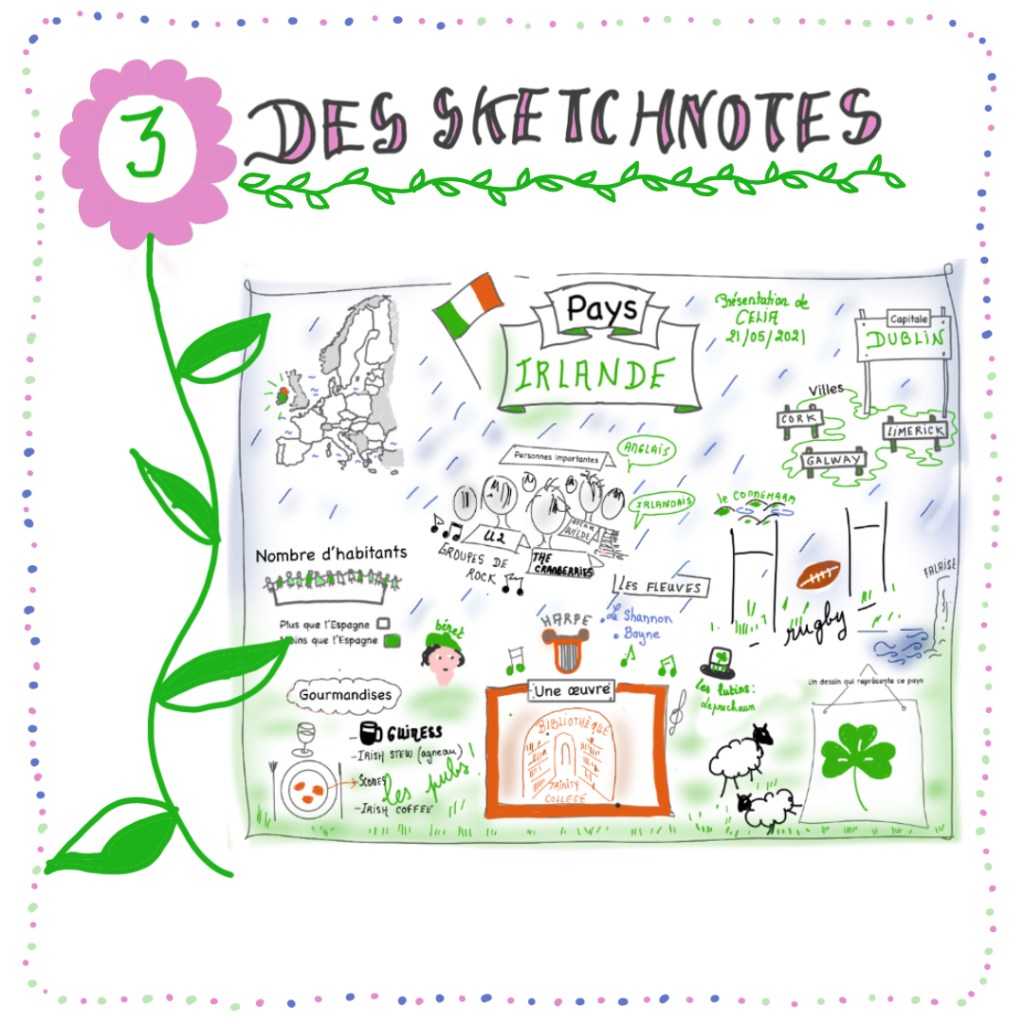 3
DES SKETCHNOTES
Pays
IRLANDE
Présentation de
CELIA
21/05/2021
Capitale
DUBLIN
Villes
CORK
LIMERICK
GALWAY
Personnes importantes
ANGLAIS
IRLANDAIS
U2
OSCAR
WILDE
THE
CRANBERRIES
GROUPES DE
ROCK
le CONNEMARA
Nombre d'habitants
Plus que l'Espagne
Moins que l'Espagne
LES FLEUVES
Le Shannon
Boyne
FALAISE
rugby
béret
HARPE
les lutins:
Leprechaun
Un dessin qui représente ce pays
Gourmandises
- GUINESS
- IRISH STEW (agneau)
SCONES
les pubs!
- IRISH COFFEE
Une œuvre
BIBLIOTHÈQUE
Trinity
COLLEGE